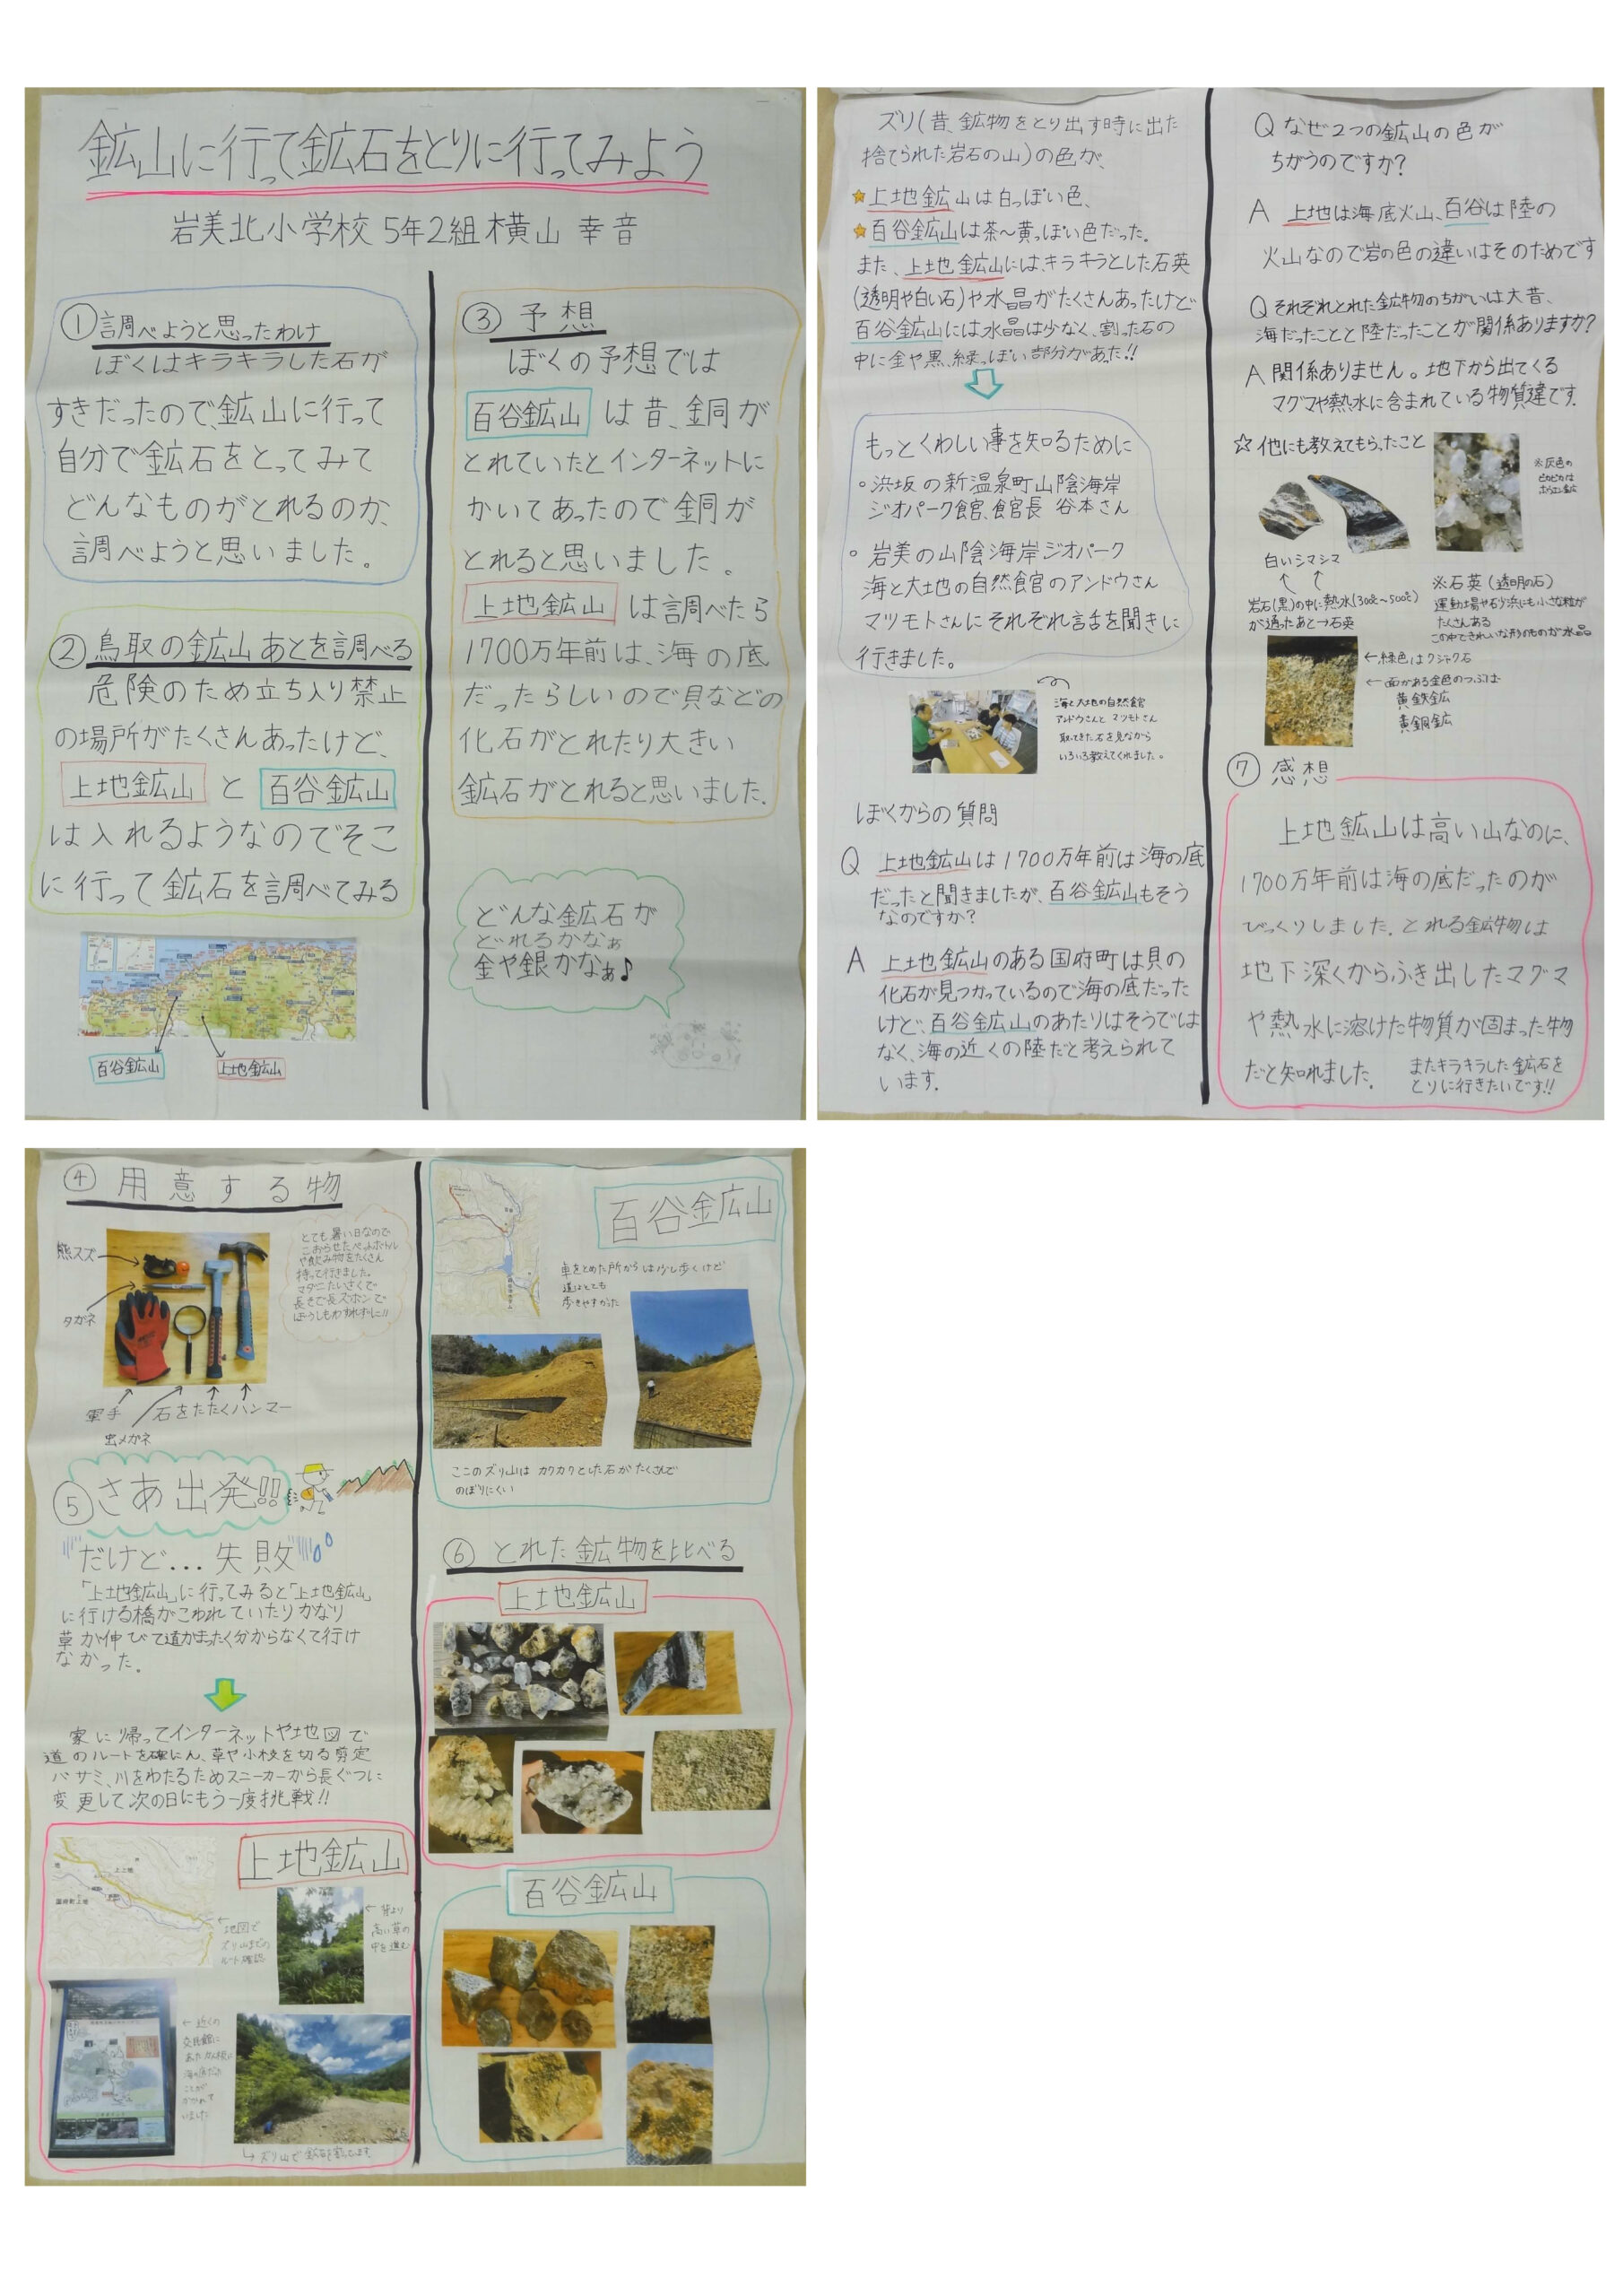 鉱山に行って鉱石をとりに行ってみよう
岩美北小学校 5年2組 横山 幸音
① 調べようと思ったわけ
ぼくはキラキラした石が
すきだったので、鉱山に行って
自分で鉱石をとってみて
どんなものがとれるのか、
調べようと思いました。
② 鳥取の鉱山あとを調べる
危険のため立ち入り禁止
の場所がたくさんあったけど、
上地鉱山 と 百谷鉱山
は入れるようなのでそこ
に行って鉱石を調べてみる
百谷鉱山
上地鉱山
③ 予想
ぼくの予想では
百谷鉱山 は昔、金同が
とれていたとインターネットに
かいてあったので銅が
とれると思いました。
上地鉱山 は調べたら
1700万年前は、海の底
だったらしいので貝などの
化石がとれたり大きい
鉱石がとれると思いました。
どんな鉱石が
どれるかなぁ
金や銀かなぁ♪
④ 用意する物
熊スズ
タガネ
軍手
虫メガネ
石をたたくハンマー
とても暑い日なので
こおらせたペットボトル
や飲み物をたくさん
持って行きました。
マダニたいさくで
長そで長ズボンで
ぼうしもわすれずに!!
⑤ さあ出発!!
だけど...失敗
「上地鉱山」に行ってみると「上地鉱山」
に行ける橋がこわれていたりかなり
草が伸びて道がまったく分からなくて行け
なかった。
家に帰ってインターネットや地図で
道のルートを確にん、草や小枝を切る剪定
バサミ、川をわたるためスニーカーから長ぐつに
変更して次の日にもう一度挑戦!!
上地鉱山
←地図で
ズリ山までの
ルート確認
←背より
高い草の
中を進む
←近くの
交流館に
海の底だった
ことが
かかれて
いました
百谷鉱山
車をとめた所からは少し歩くけど
道はとても
歩きやすかった
ここのズリ山は カクカクとした石がたくさんで
のぼりにくい
⑥ とれた鉱物を比べる
上地鉱山
百谷鉱山
ズリ(昔、鉱物をとり出す時に出た
捨てられた岩石の山)の色が、
★上地鉱山は白っぽい色、
★百谷鉱山は茶〜黄っぽい色だった。
また、上地鉱山には、キラキラとした石英
(透明や白い石)や水晶がたくさんあったけど
百谷鉱山には水晶は少なく、割った石の
中に金や黒、緑っぽい部分があった!!
もっとくわしい事を知るために
。浜坂の新温泉町山陰海岸
ジオパーク館、館長 谷本さん
。岩美の山陰海岸ジオパーク
海と大地の自然館のアンドウさん
マツモトさんにそれぞれ話を聞きに
行きました。
海と大地の自然館
アンドウさんと マツモトさん
取ってきた石を見ながら
いろいろ教えてくれました。
ぼくからの質問
Q 上地鉱山は1700万年前は海の底
だったと聞きましたが、百谷鉱山もそう
なのですか?
A 上地鉱山のある国府町は貝の
化石が見つかっているので海の底だった
けど、百谷鉱山のあたりはそうでは
なく、海の近くの陸だと考えられて
います。
Q なぜ2つの鉱山の色が
ちがうのですか?
A 上地は海底火山、百谷は陸の
火山なので岩の色の違いはそのためです
Q それぞれとれた鉱物のちがいは大昔、
海だったことと陸だったことが関係ありますか?
A 関係ありません。地下から出てくる
マグマや熱水に含まれている物質違です。
☆他にも教えてもらったこと
白いシマシマ
岩石(黒)の中に熱水(300℃〜500℃)
が通ったあと→石英
※灰色の
ピカピカは
※石英(透明の石)
運動場や砂浜にも小さな粒が
たくさんある
この中できれいな形のものが水晶
←緑色はクジャク石
←面がある金色のつぶは
黄鉄鉱
黄銅鉱
⑦ 感想
上地鉱山は高い山なのに、
1700万年前は海の底だったのが
びっくりしました。とれる鉱物は
地下深くからふき出したマグマ
や熱水に溶けた物質が固まった物
だと知れました。
またキラキラした鉱石を
とりに行きたいです!!